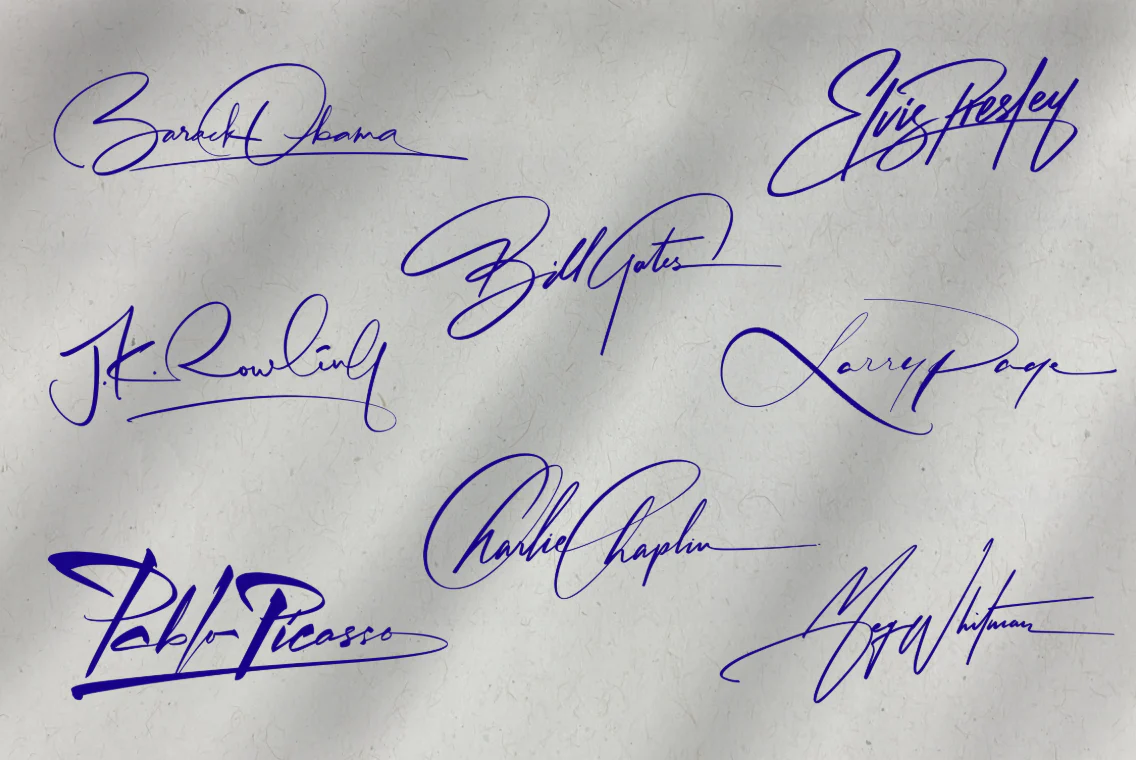 Barack Obama
Elvis Presley
Bill Gates
J.K. Rowling
Larry Page
Charlie Chaplin
Pablo Picasso
Meg Whitman